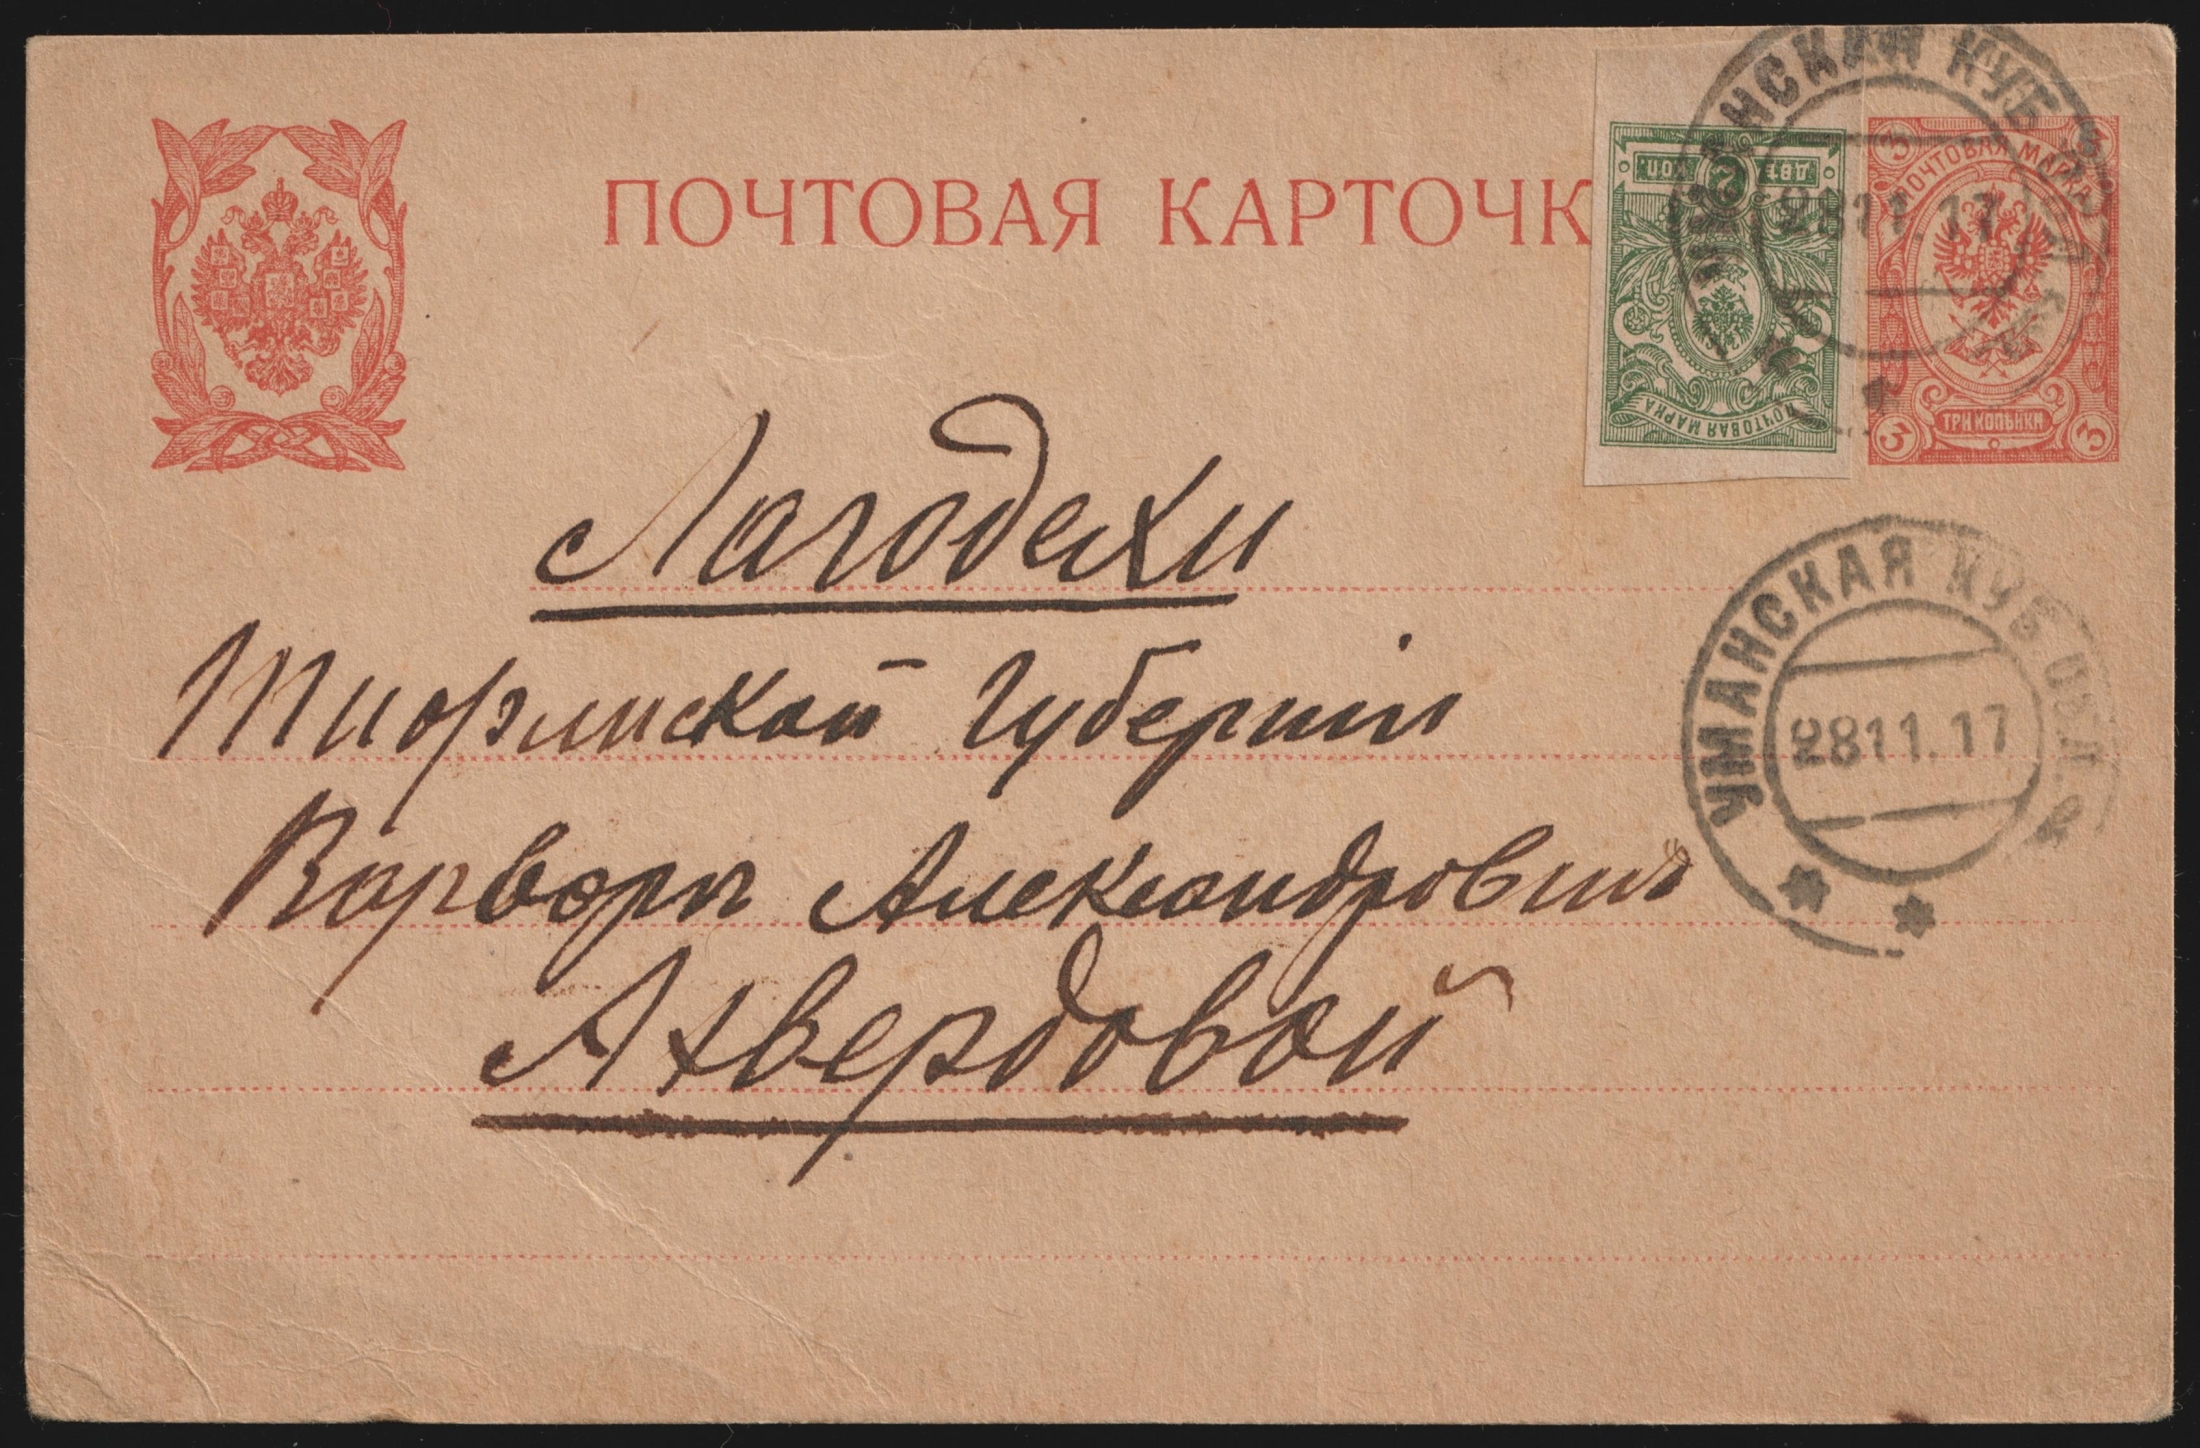 ПОЧТОВАЯ КАРТОЧК
ДВѢ 2 КОП.
ПОЧТОВАЯ МАРКА
3 ПОЧТОВАЯ МАРКА 3
3 ТРИ КОПѢЙКИ 3
НСКАЯ КУБ
2811.17
Лагодехи
Тифлисской Губернiи
Варвары Александровнѣ
Ахвердовой
УМАНСКАЯ КУБ. ОБЛ.
2811.17